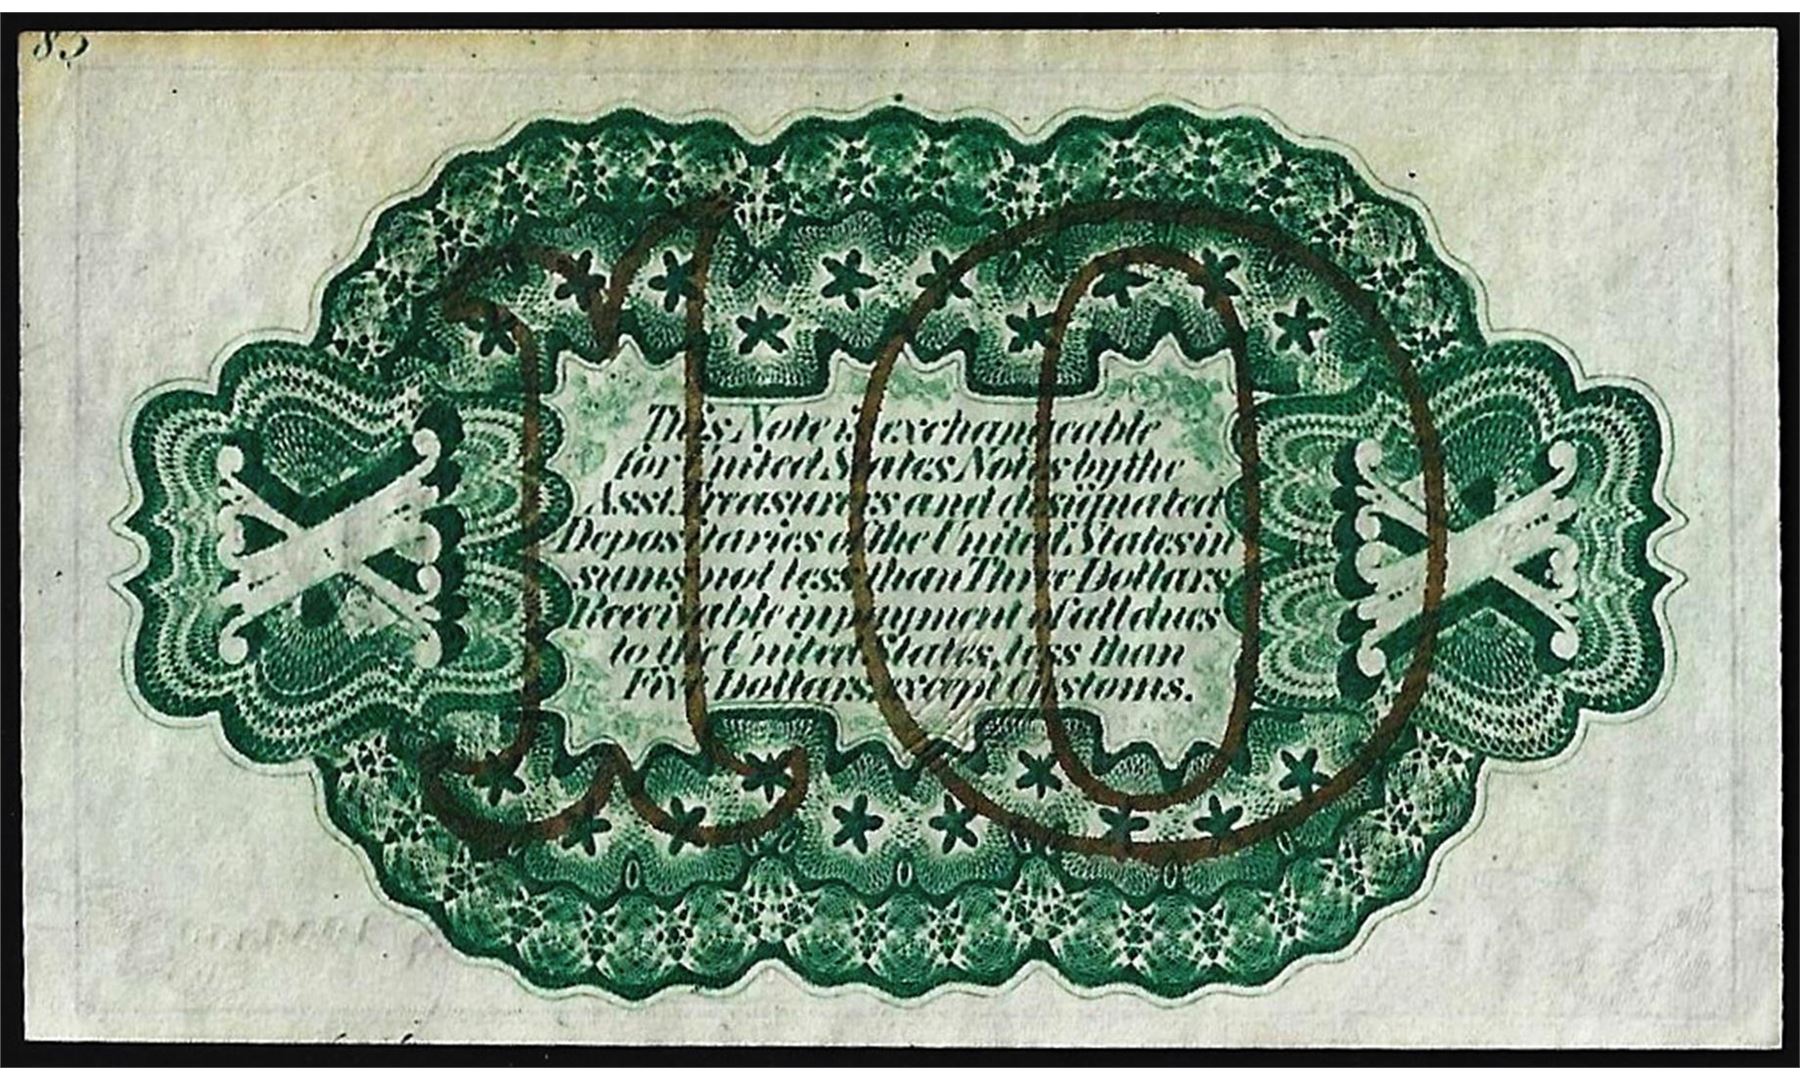 85
10
X X
This Note is exchangeable
for United States Notes by the
Asst. Treasurers and designated
Depositaries of the United States in
sums not less than Three Dollars
Receivable in payment of all dues
to the United States, less than
Five Dollars, except Customs.